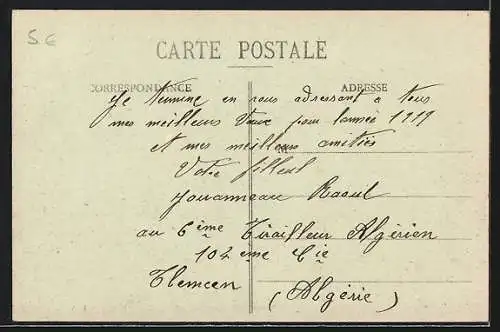 5 €
CARTE POSTALE
CORRESPONDANCE
ADRESSE
Je termine en vous adressant a tous
mes meilleurs Vœux pour l'année 1919
et mes meilleurs amitiés
Votre filleul
Jouanneau Raoul
au 6ème Tirailleur Algérien
102ème Cie
Tlemcen
(Algérie)